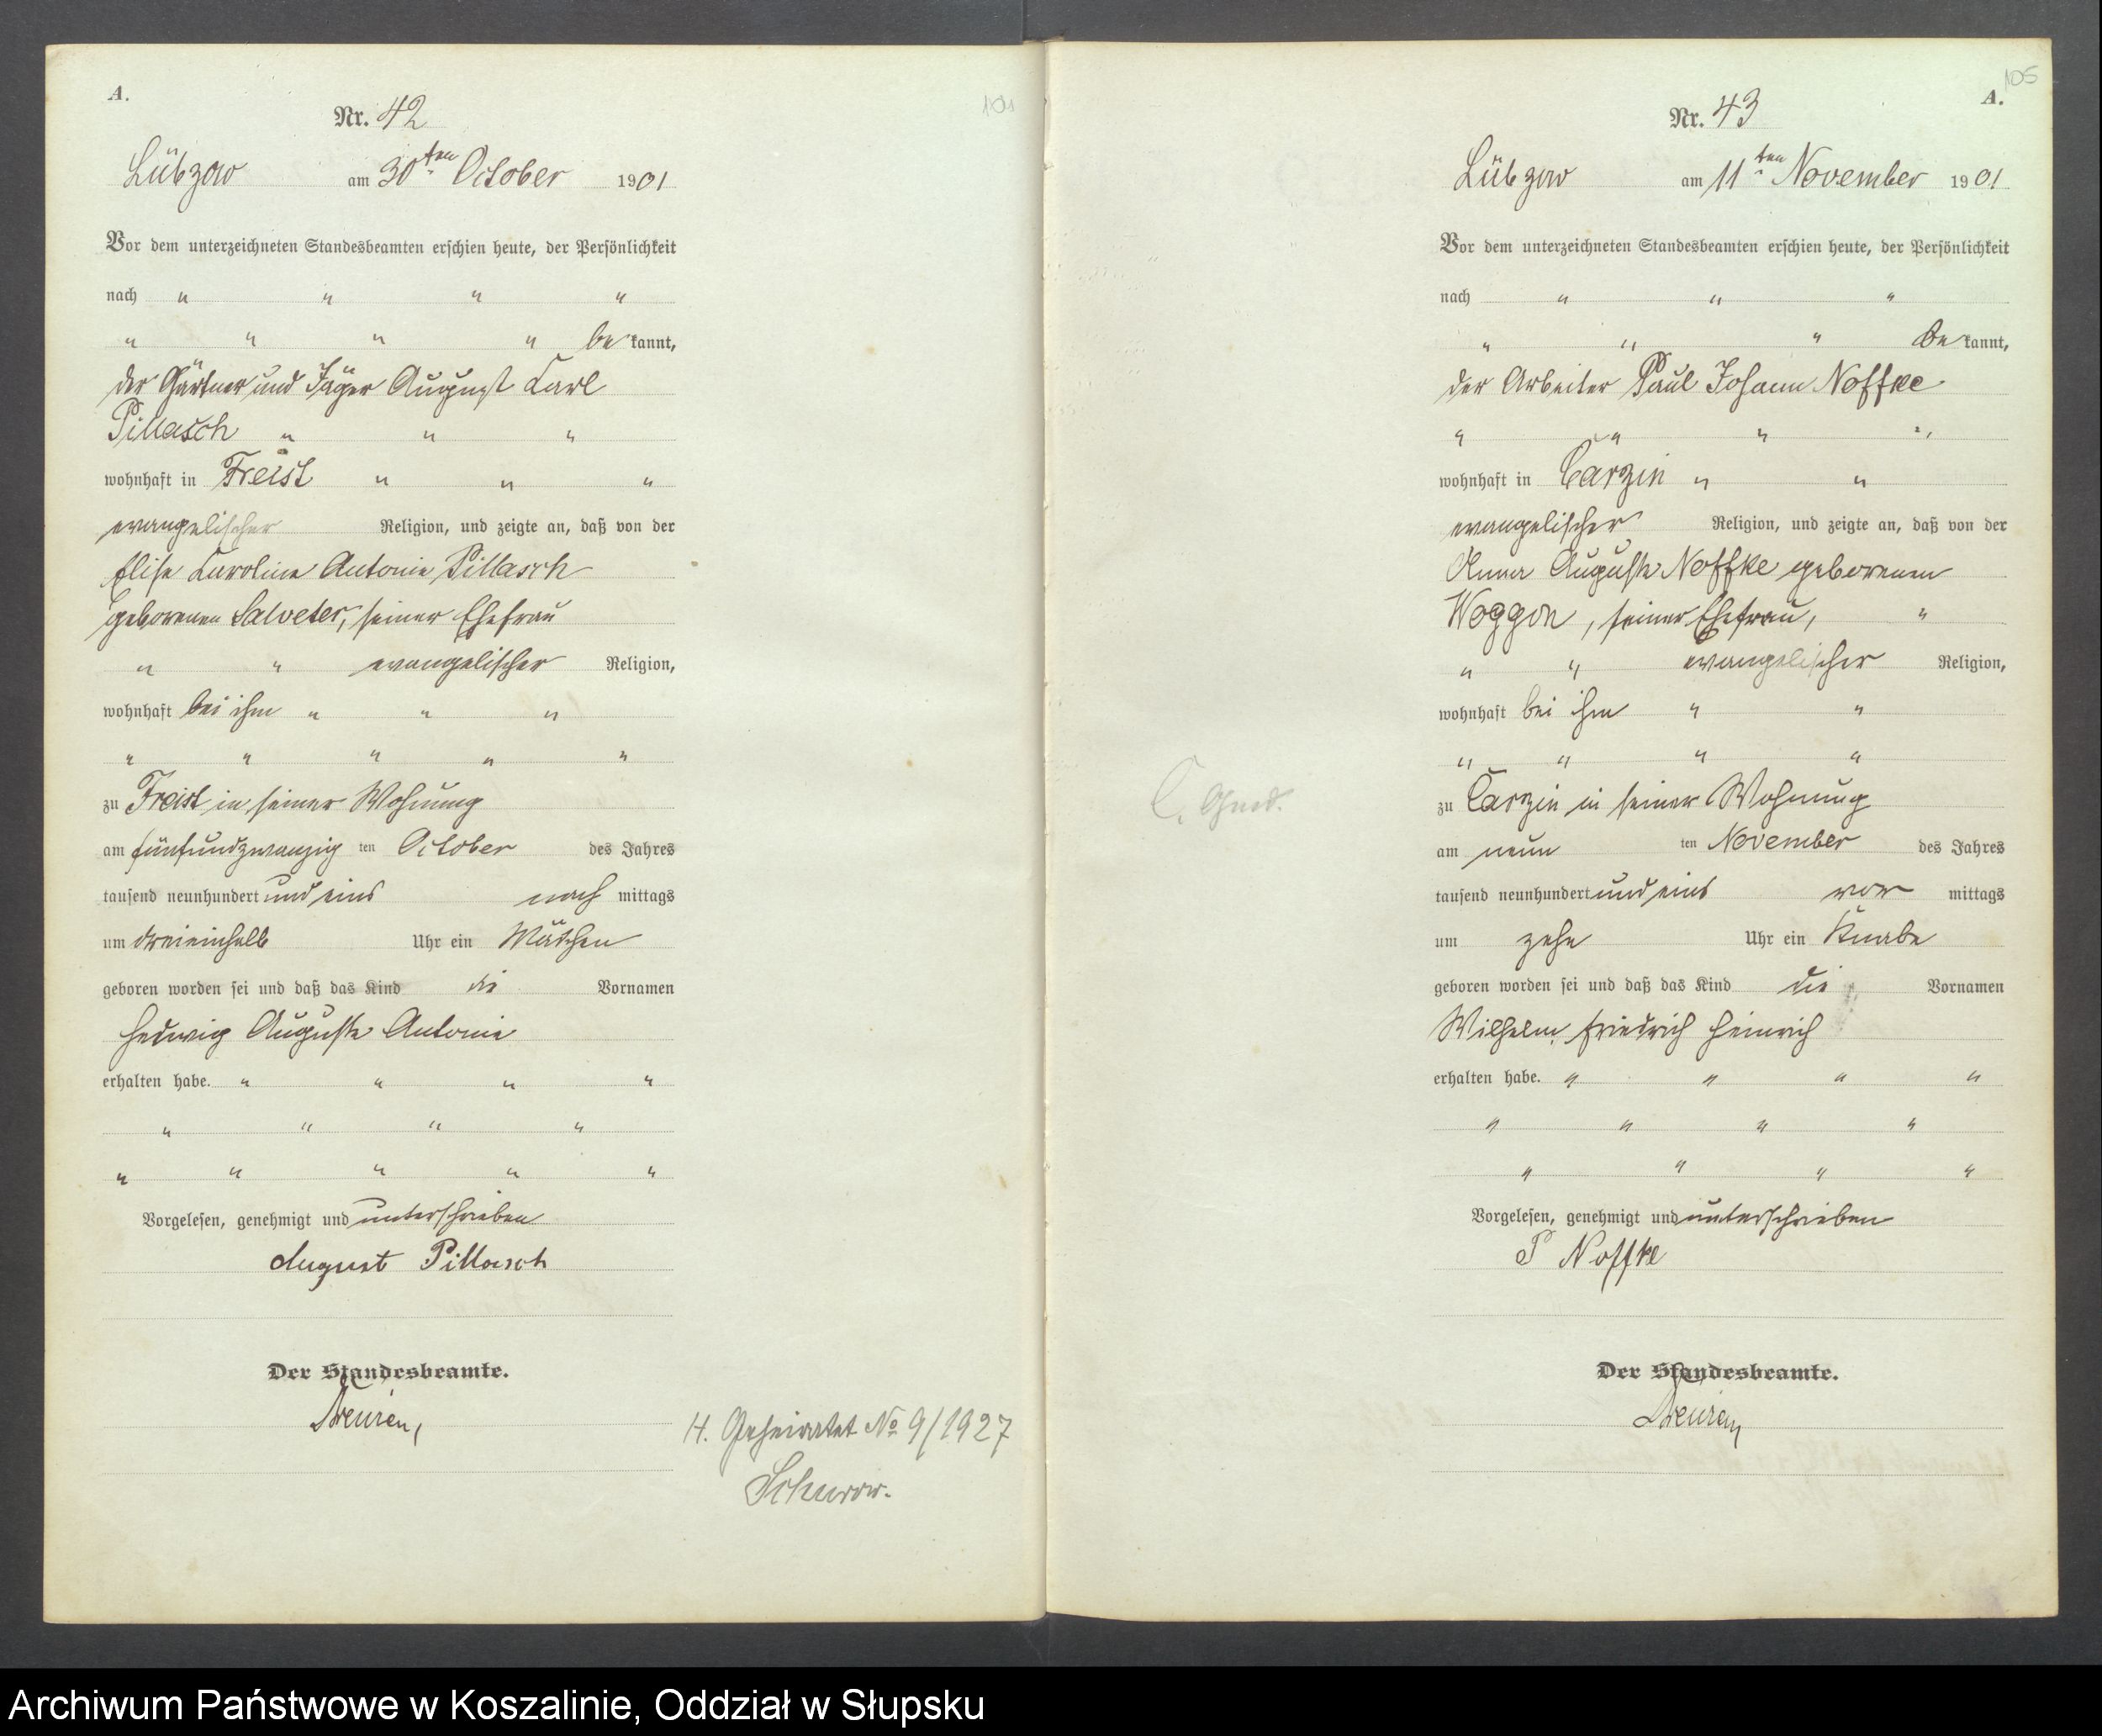 A.
104
Nr. 42
Lübzow am 30ten October 1901
Vor dem unterzeichneten Standesbeamten erschien heute, der Persönlichkeit
nach " " " "
" " " " be kannt,
der Gärtner und Jäger August Carl
Pillasch " " "
wohnhaft in Freist " " "
evangelischer Religion, und zeigte an, daß von der
Elise Karoline Antonie Pillasch
geborenen Salveter, seiner Ehefrau
" " evangelischer Religion,
wohnhaft bei ihm " " "
" " " " "
zu Freist in seiner Wohnung
am fünfundzwanzig ten October des Jahres
tausend neunhundert und eins nach mittags
um dreieinhalb Uhr ein Mädchen
geboren worden sei und daß das Kind die Vornamen
Hedwig Auguste Antonie
erhalten habe. " " " "
" " " "
" " " " "
Vorgelesen, genehmigt und unterschrieben
August Pillasch
Der Standesbeamte.
H. Geheiratet No 9/1927
Schurow.
105
A.
Nr. 43
Lübzow am 11ten November 1901
Vor dem unterzeichneten Standesbeamten erschien heute, der Persönlichkeit
nach " " "
" " " be kannt,
der Arbeiter Paul Johann Noffke
" " " "
wohnhaft in Carzin " "
evangelischer Religion, und zeigte an, daß von der
Anna Auguste Noffke geborenen
Woggon, seiner Ehefrau, "
" " evangelischer Religion,
wohnhaft bei ihm " "
" " " "
zu Carzin in seiner Wohnung
am neun ten November des Jahres
tausend neunhundert und eins vor mittags
um zehn Uhr ein Knabe
geboren worden sei und daß das Kind die Vornamen
Wilhelm Friedrich Heinrich
erhalten habe. " " " "
" " " "
" " " "
Vorgelesen, genehmigt und unterschrieben
P Noffke
Der Standesbeamte.
Archiwum Państwowe w Koszalinie, Oddział w Słupsku